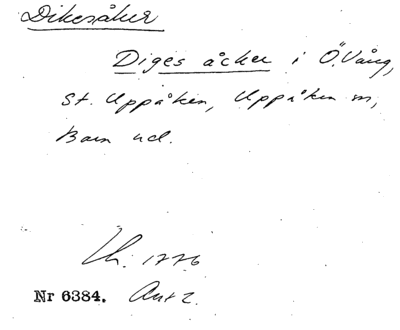 Dikesåker
Diges åcker i Ö. Vång,
St. Uppåkra, Uppåkra sn,
Bara hd.
Lh. 1776
Nr 6384. Akt 2.